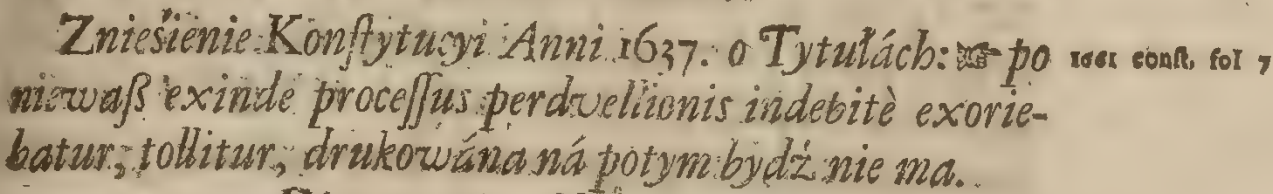 Znieśienie Konſtytucyi Anni 1637. o Tytułách: ☞ po 1661 conſt. fol 7
niewaß exinde proceſſus perduellionis indebitè exorie-
batur, tollitur, drukowána ná potym bydź nie ma.